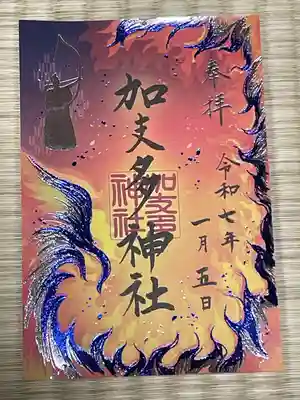 奉拝
令和七年
一月五日
加支多神社
加支多
神社